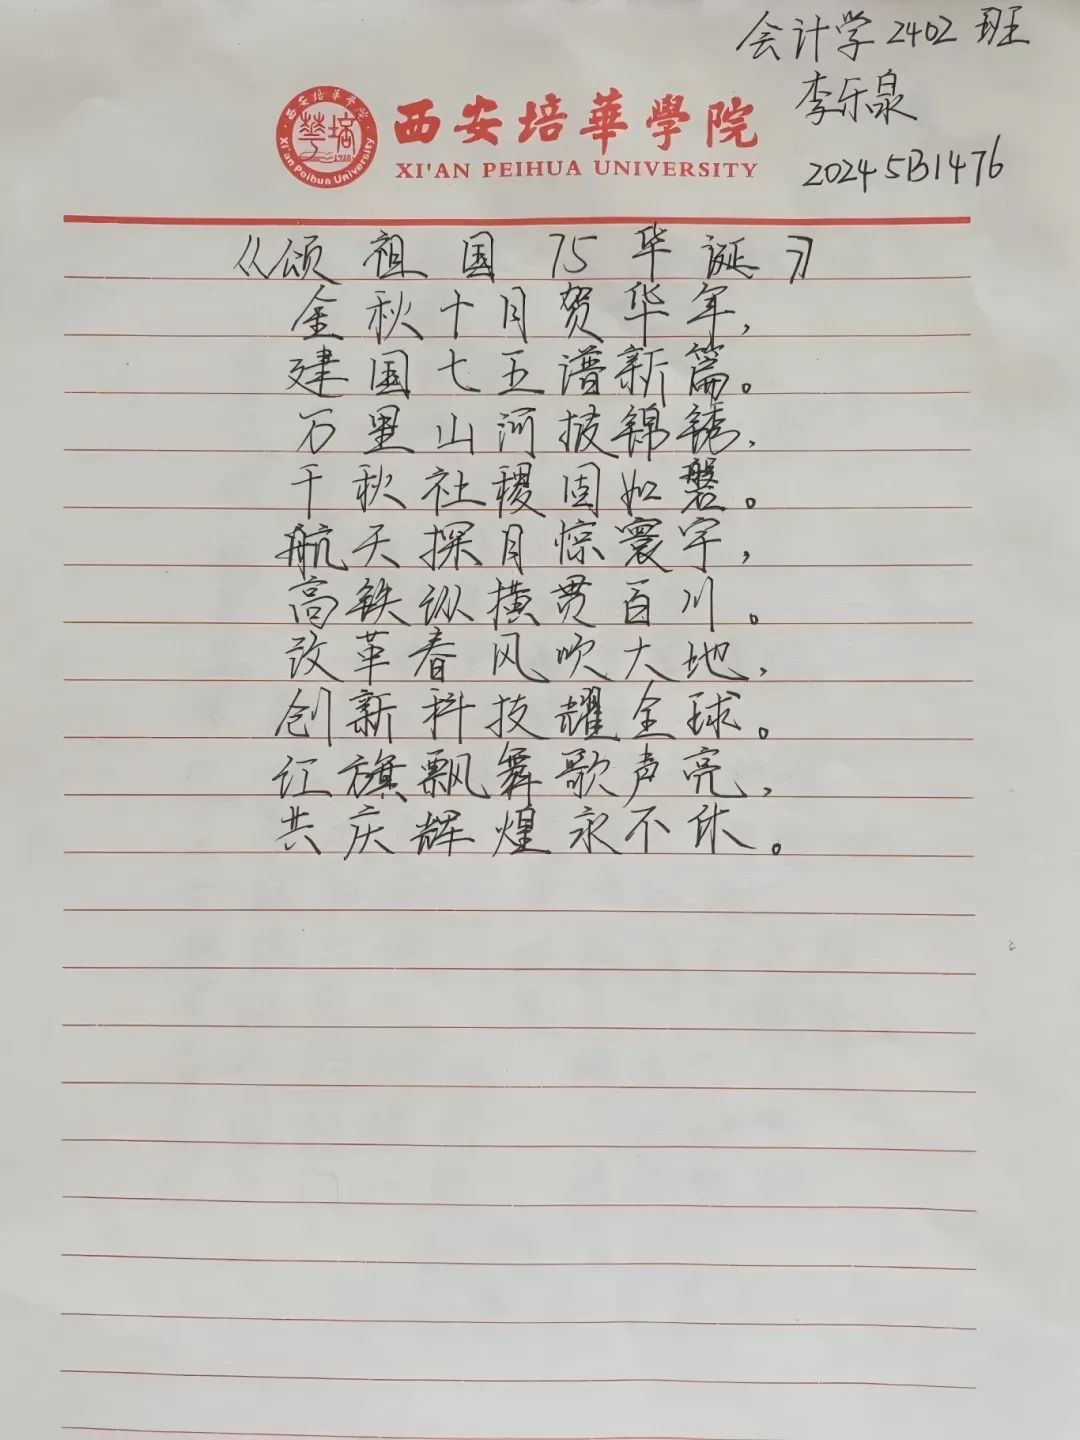 会计学2402班
李乐泉
20245B1476
西安培華學院
XI'AN PEIHUA UNIVERSITY
西安培华学院
華培
1928
Xi'an Peihua University
《颂祖国75华诞》
金秋十月贺华年,
建国七五谱新篇。
万里山河披锦锈,
千秋社稷固如磐。
航天探月惊寰宇,
高铁纵横贯百川。
改革春风吹大地,
创新科技耀全球。
红旗飘舞歌声亮,
共庆辉煌永不休。